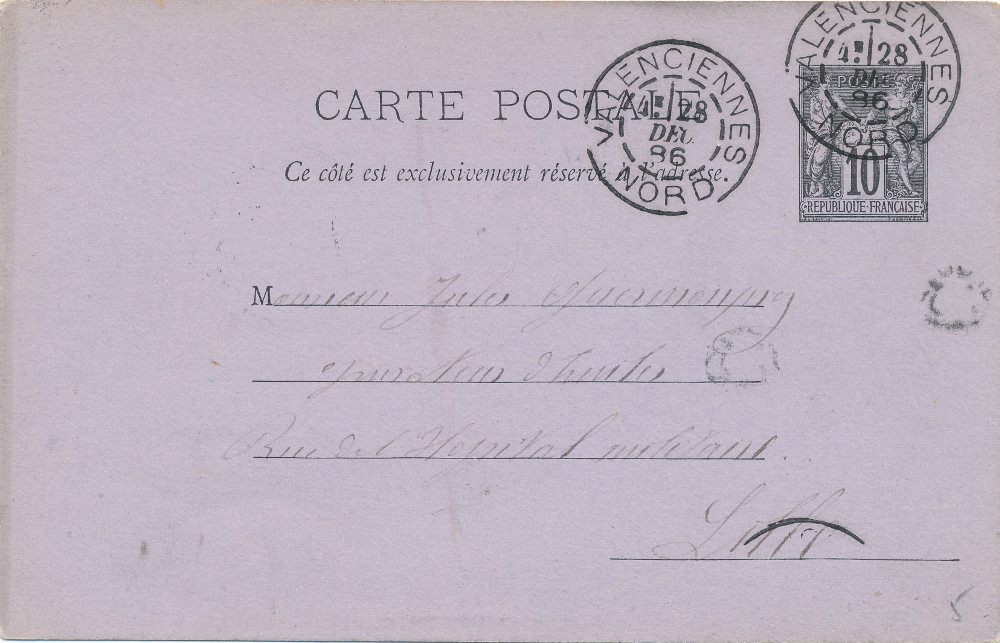 CARTE POSTALE
Ce côté est exclusivement réservé à l'adresse.
VALENCIENNES
4E 28
DEC
86
NORD
VALENCIENNES
4E 28
DEC
86
NORD
POSTES
10
REPUBLIQUE FRANÇAISE
Monsieur Jules
d'huiles
Rue de l'Hôpital militaire.
Lille
5